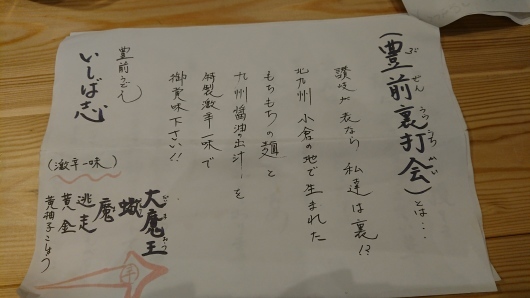 (豊前裏打会)とは…
讃岐が表なら 私達は裏!?
北九州 小倉の地で生まれた
もちもちの麺と
九州醤油の出汁を
特製激辛一味で
御賞味下さい!!
豊前うどん
いしば志
(激辛一味)
大魔王
蠍
魔
逃走
黄金
黄柚子こしょう